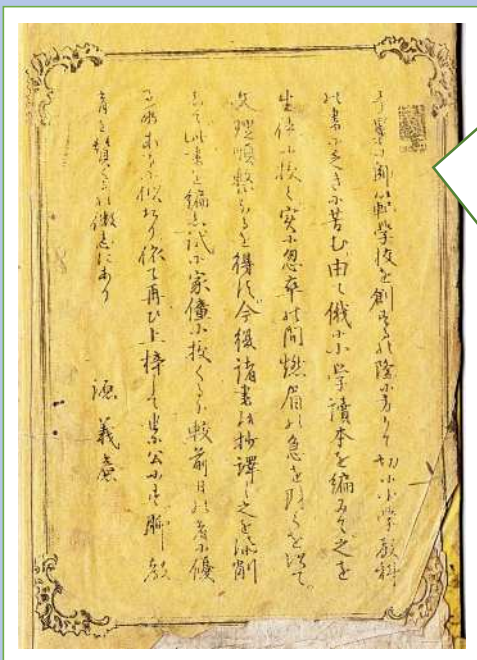 師範學校を創するの際に方りて切に小學教科
の書に乏きに苦む由て俄に小学讀本を編みて之を
生徒に授く實に忽卒の間燃眉の急を防くを以て
文理順整なるを得す今復諸書を抄譯し之を添削
して此書を編し試に家僮に授くるに較前日の者に優
る所あるに似たり依て再ひ上梓して公にす聊教
育を賛くるの微志にあり
源 義